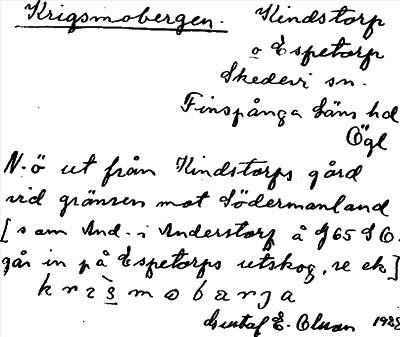 Krigsmobergen. Kindstorp
o Espetorp
Skedevi sn.
Finspånga läns hd
Ögl
N. ö ut från Kindstorps gård
vid gränsen mot Södermanland
[som And. i Anderstorp å J65 SO.
går in på Espetorps utskog, se ek]
krismobærja
Gustaf E. Olsson